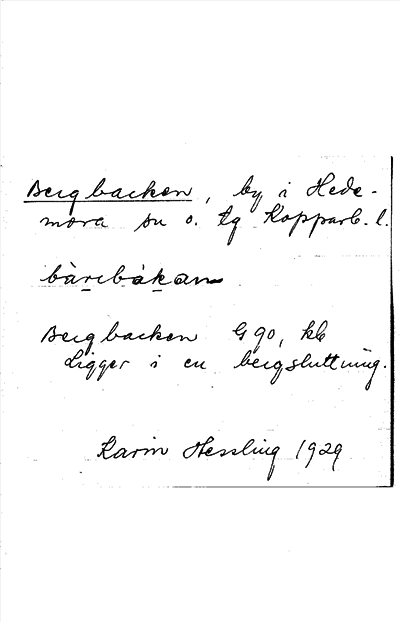 Bergbacken, by i Hede-
mora sn o. tg Kopparb. l.
bàrcbàkan
Bergbacken G 90, kb
Ligger i en bergsluttning.
Karin Hessling 1929